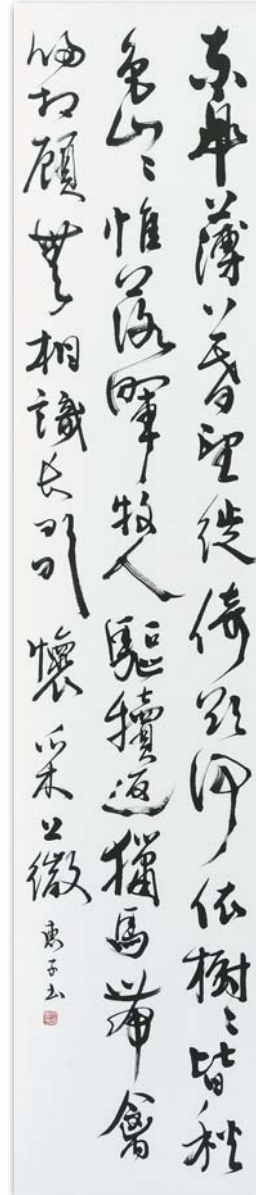 東皋薄暮望徙倚欲何依樹〻皆秋
色山〻惟落暉牧人驅犢返獵馬帶禽
歸相顧無相識長歌懷采薇 庚子書